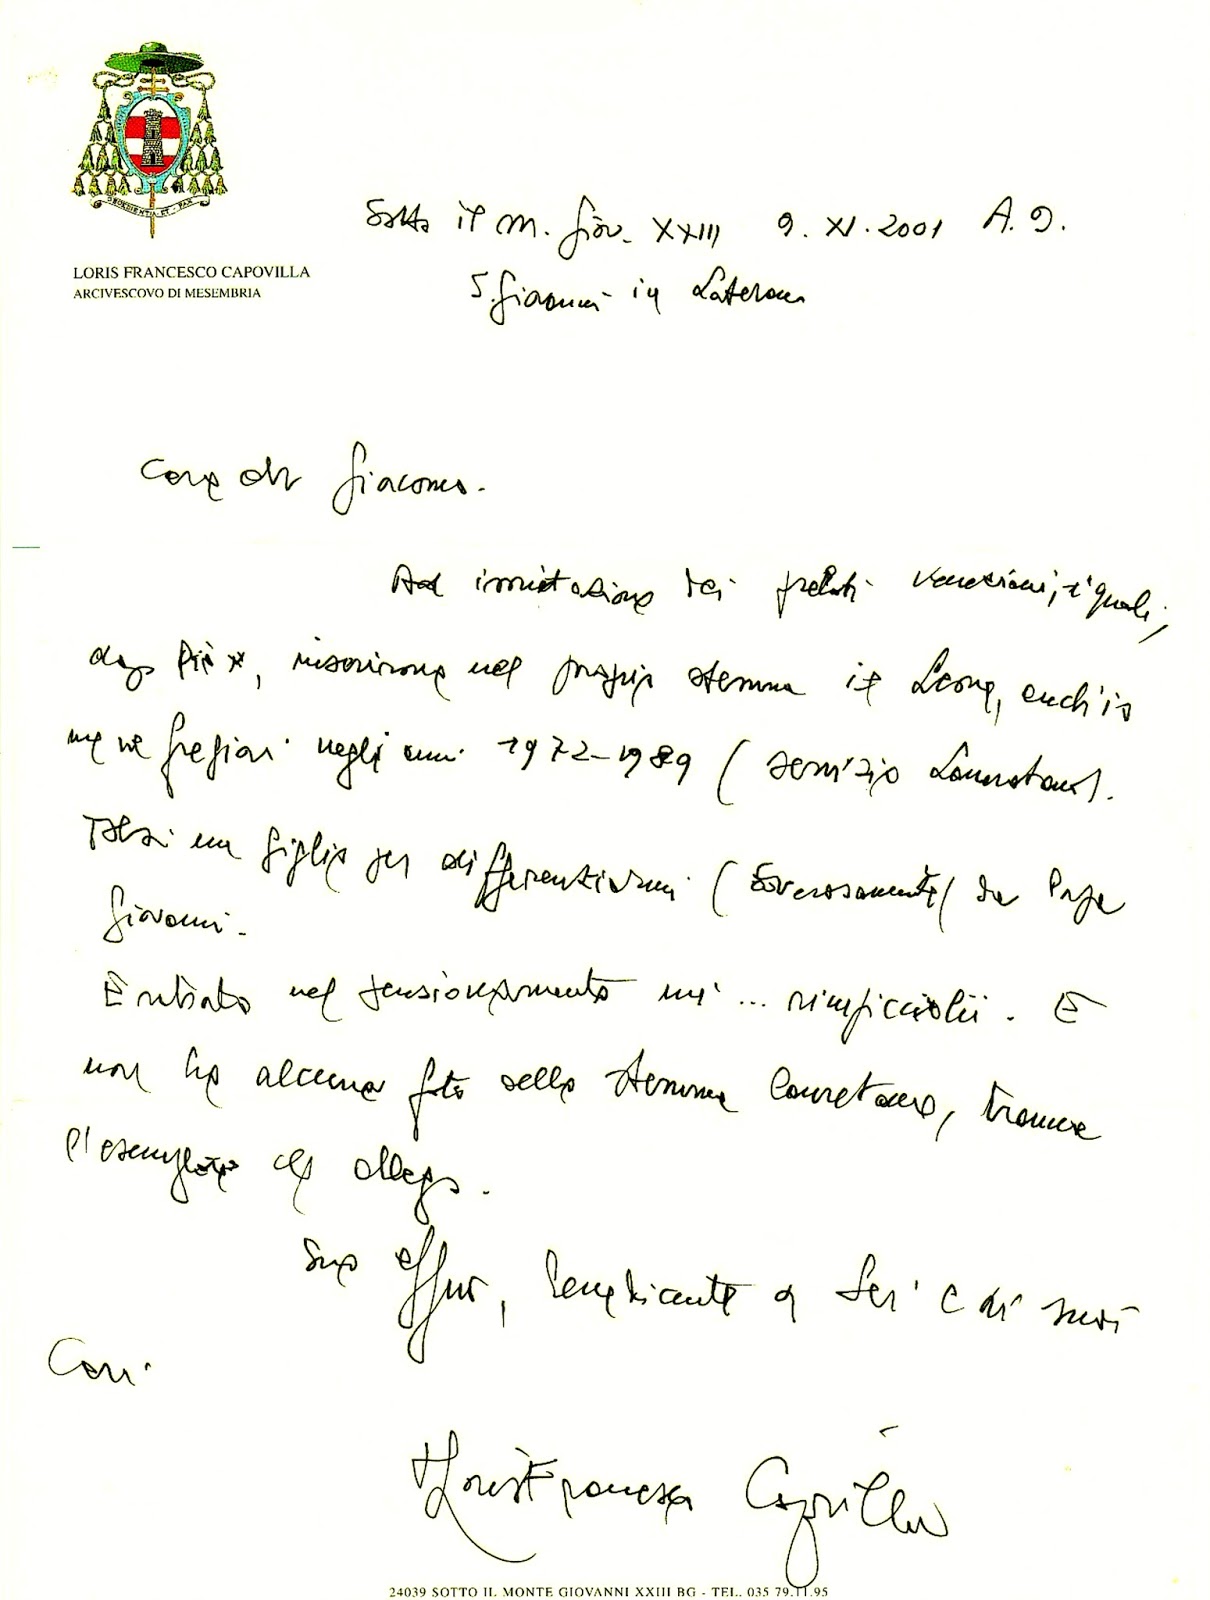 OBOEDIENTIA ET PAX
LORIS FRANCESCO CAPOVILLA
ARCIVESCOVO DI MESEMBRIA
Sotto il M. Giov. XXIII 9. XI. 2001 A. D.
S. Giovanni in Laterano
Caro dr Giacomo.
Ad imitazione dei prelati veneziani, i quali,
dopo Pio X, inserirono nel proprio stemma il Leone, anch'io
me ne fregiai negli anni 1972-1989 (servizio Lauretano).
Tolsi un giglio per differenziarmi (doverosamente) da Papa
Giovanni.
Entrato nel pensionamento mi ... rimpicciolii. E
non ho alcuna foto dello stemma lauretano, tranne
l'esemplare che allego.
Suo aff.mo, benedicente a Lei e ai suoi
Cari
+ Loris Francesco Capovilla
24039 SOTTO IL MONTE GIOVANNI XXIII BG - TEL. 035 79.11.95